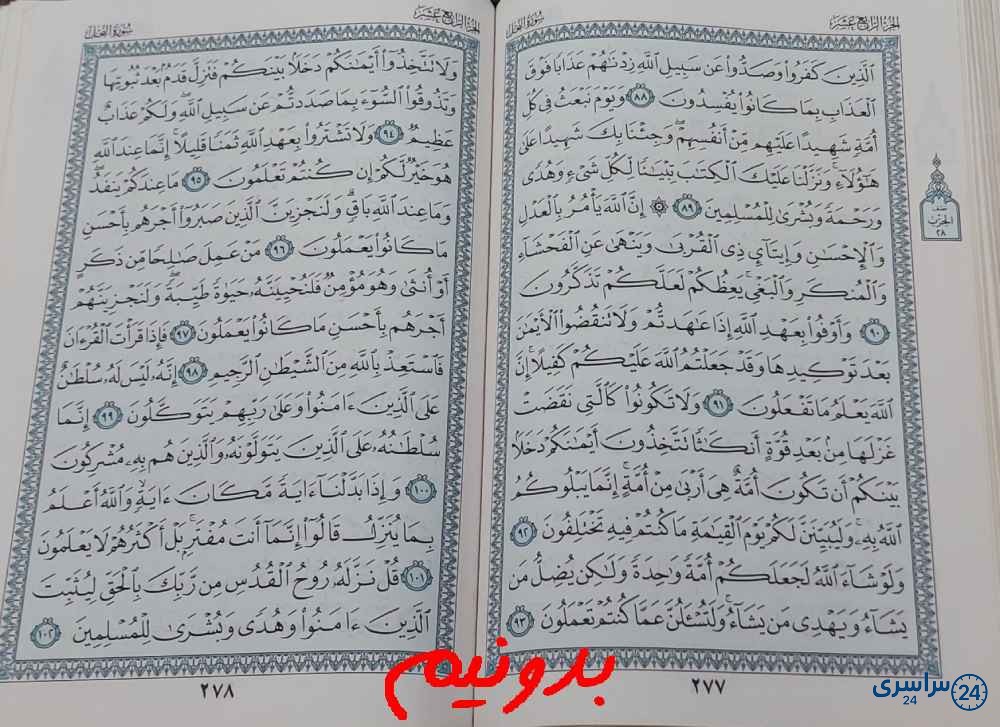 الجزء الرابع عشر
سورة النحل
الَّذِينَ كَفَرُوا وَصَدُّوا عَن سَبِيلِ اللَّهِ زِدْنَٰهُمْ عَذَابًا فَوْقَ
الْعَذَابِ بِمَا كَانُوا يُفْسِدُونَ ٨٨ وَيَوْمَ نَبْعَثُ فِي كُلِّ
أُمَّةٍ شَهِيدًا عَلَيْهِم مِّنْ أَنفُسِهِمْ ۖ وَجِئْنَا بِكَ شَهِيدًا عَلَىٰ
هَٰٓؤُلَآءِ ۚ وَنَزَّلْنَا عَلَيْكَ الْكِتَٰبَ تِبْيَٰنًا لِّكُلِّ شَىْءٍ وَهُدًى
وَرَحْمَةً وَبُشْرَىٰ لِلْمُسْلِمِينَ ٨٩ ۞ إِنَّ اللَّهَ يَأْمُرُ بِالْعَدْلِ
وَالْإِحْسَٰنِ وَإِيتَآئِ ذِى الْقُرْبَىٰ وَيَنْهَىٰ عَنِ الْفَحْشَآءِ
وَالْمُنكَرِ وَالْبَغْىِ ۚ يَعِظُكُمْ لَعَلَّكُمْ تَذَكَّرُونَ
٩٠ وَأَوْفُوا بِعَهْدِ اللَّهِ إِذَا عَٰهَدتُّمْ وَلَا تَنقُضُوا الْأَيْمَٰنَ
بَعْدَ تَوْكِيدِهَا وَقَدْ جَعَلْتُمُ اللَّهَ عَلَيْكُمْ كَفِيلًا ۚ إِنَّ
اللَّهَ يَعْلَمُ مَا تَفْعَلُونَ ٩١ وَلَا تَكُونُوا كَالَّتِى نَقَضَتْ
غَزْلَهَا مِنۢ بَعْدِ قُوَّةٍ أَنكَٰثًا تَتَّخِذُونَ أَيْمَٰنَكُمْ دَخَلًۢا
بَيْنَكُمْ أَن تَكُونَ أُمَّةٌ هِىَ أَرْبَىٰ مِنْ أُمَّةٍ ۚ إِنَّمَا يَبْلُوكُمُ
اللَّهُ بِهِ ۚ وَلَيُبَيِّنَنَّ لَكُمْ يَوْمَ الْقِيَٰمَةِ مَا كُنتُمْ فِيهِ تَخْتَلِفُونَ ٩٢
وَلَوْ شَآءَ اللَّهُ لَجَعَلَكُمْ أُمَّةً وَٰحِدَةً وَلَٰكِن يُضِلُّ مَن
يَشَآءُ وَيَهْدِى مَن يَشَآءُ ۚ وَلَتُسْـَٔلُنَّ عَمَّا كُنتُمْ تَعْمَلُونَ ٩٣
٢٧٧
الحزب
٢٨
الجزء الرابع عشر
سورة النحل
وَلَا تَتَّخِذُوٓا أَيْمَٰنَكُمْ دَخَلًۢا بَيْنَكُمْ فَتَزِلَّ قَدَمٌۢ بَعْدَ ثُبُوتِهَا
وَتَذُوقُوا السُّوٓءَ بِمَا صَدَدتُّمْ عَن سَبِيلِ اللَّهِ ۖ وَلَكُمْ عَذَابٌ
عَظِيمٌ ٩٤ وَلَا تَشْتَرُوا بِعَهْدِ اللَّهِ ثَمَنًا قَلِيلًا ۚ إِنَّمَا عِندَ اللَّهِ
هُوَ خَيْرٌ لَّكُمْ إِن كُنتُمْ تَعْلَمُونَ ٩٥ مَا عِندَكُمْ يَنفَدُ ۖ
وَمَا عِندَ اللَّهِ بَاقٍ ۗ وَلَنَجْزِيَنَّ الَّذِينَ صَبَرُوٓا أَجْرَهُم بِأَحْسَنِ
مَا كَانُوا يَعْمَلُونَ ٩٦ مَنْ عَمِلَ صَٰلِحًا مِّن ذَكَرٍ
أَوْ أُنثَىٰ وَهُوَ مُؤْمِنٌ فَلَنُحْيِيَنَّهُۥ حَيَوٰةً طَيِّبَةً ۖ وَلَنَجْزِيَنَّهُمْ
أَجْرَهُم بِأَحْسَنِ مَا كَانُوا يَعْمَلُونَ ٩٧ فَإِذَا قَرَأْتَ الْقُرْءَانَ
فَاسْتَعِذْ بِاللَّهِ مِنَ الشَّيْطَٰنِ الرَّجِيمِ ٩٨ إِنَّهُۥ لَيْسَ لَهُۥ سُلْطَٰنٌ
عَلَى الَّذِينَ ءَامَنُوا وَعَلَىٰ رَبِّهِمْ يَتَوَكَّلُونَ ٩٩ إِنَّمَا
سُلْطَٰنُهُۥ عَلَى الَّذِينَ يَتَوَلَّوْنَهُۥ وَالَّذِينَ هُم بِهِۦ مُشْرِكُونَ
١٠٠ وَإِذَا بَدَّلْنَآ ءَايَةً مَّكَانَ ءَايَةٍ ۙ وَاللَّهُ أَعْلَمُ
بِمَا يُنَزِّلُ قَالُوٓا إِنَّمَآ أَنتَ مُفْتَرٍۭ ۚ بَلْ أَكْثَرُهُمْ لَا يَعْلَمُونَ
١٠١ قُلْ نَزَّلَهُۥ رُوحُ الْقُدُسِ مِن رَّبِّكَ بِالْحَقِّ لِيُثَبِّتَ
الَّذِينَ ءَامَنُوا وَهُدًى وَبُشْرَىٰ لِلْمُسْلِمِينَ ١٠٢
٢٧٨
بدونیم
سراسری 24
24